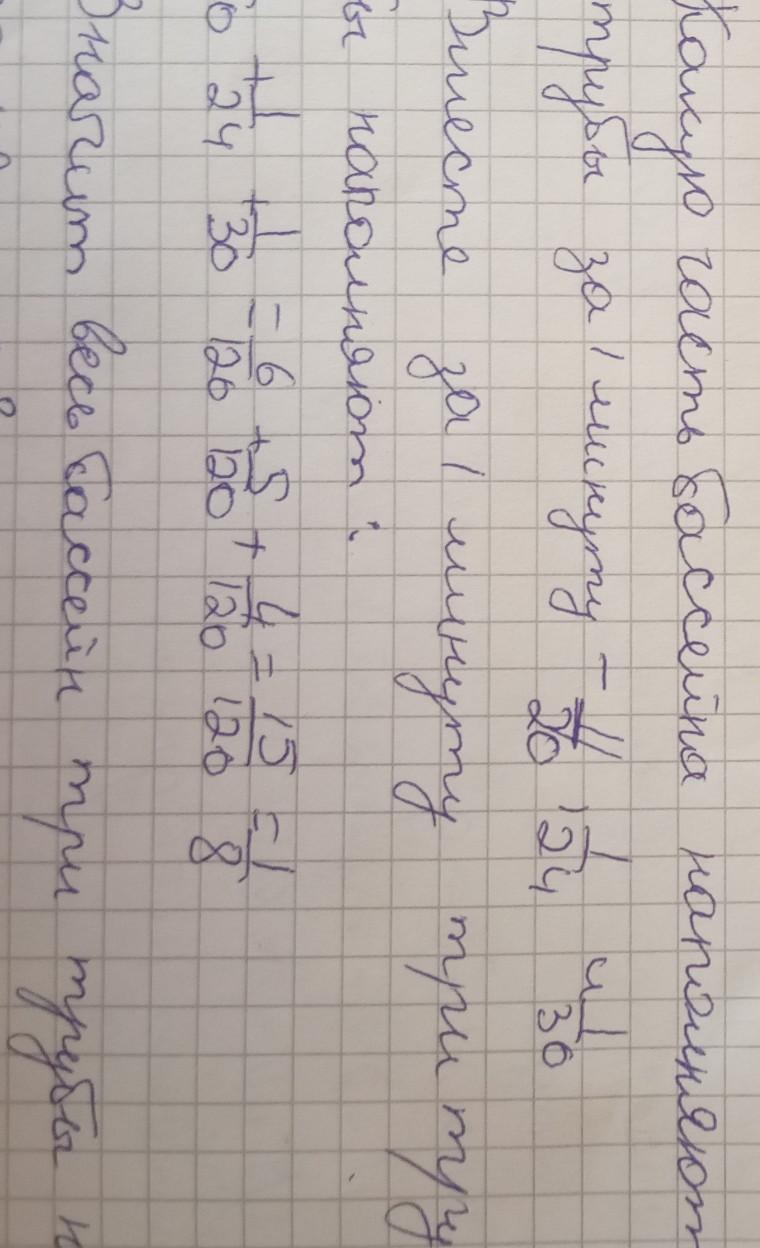 Какую часть бассейна наполняют
трубы за 1 минуту - 1/20, 1/24 и 1/30
Вместе за 1 минуту три тру
бы наполняют:
0 + 1/24 + 1/30 = 6/120 + 5/120 + 4/120 = 15/120 = 1/8
Значит весь бассейн три трубы н